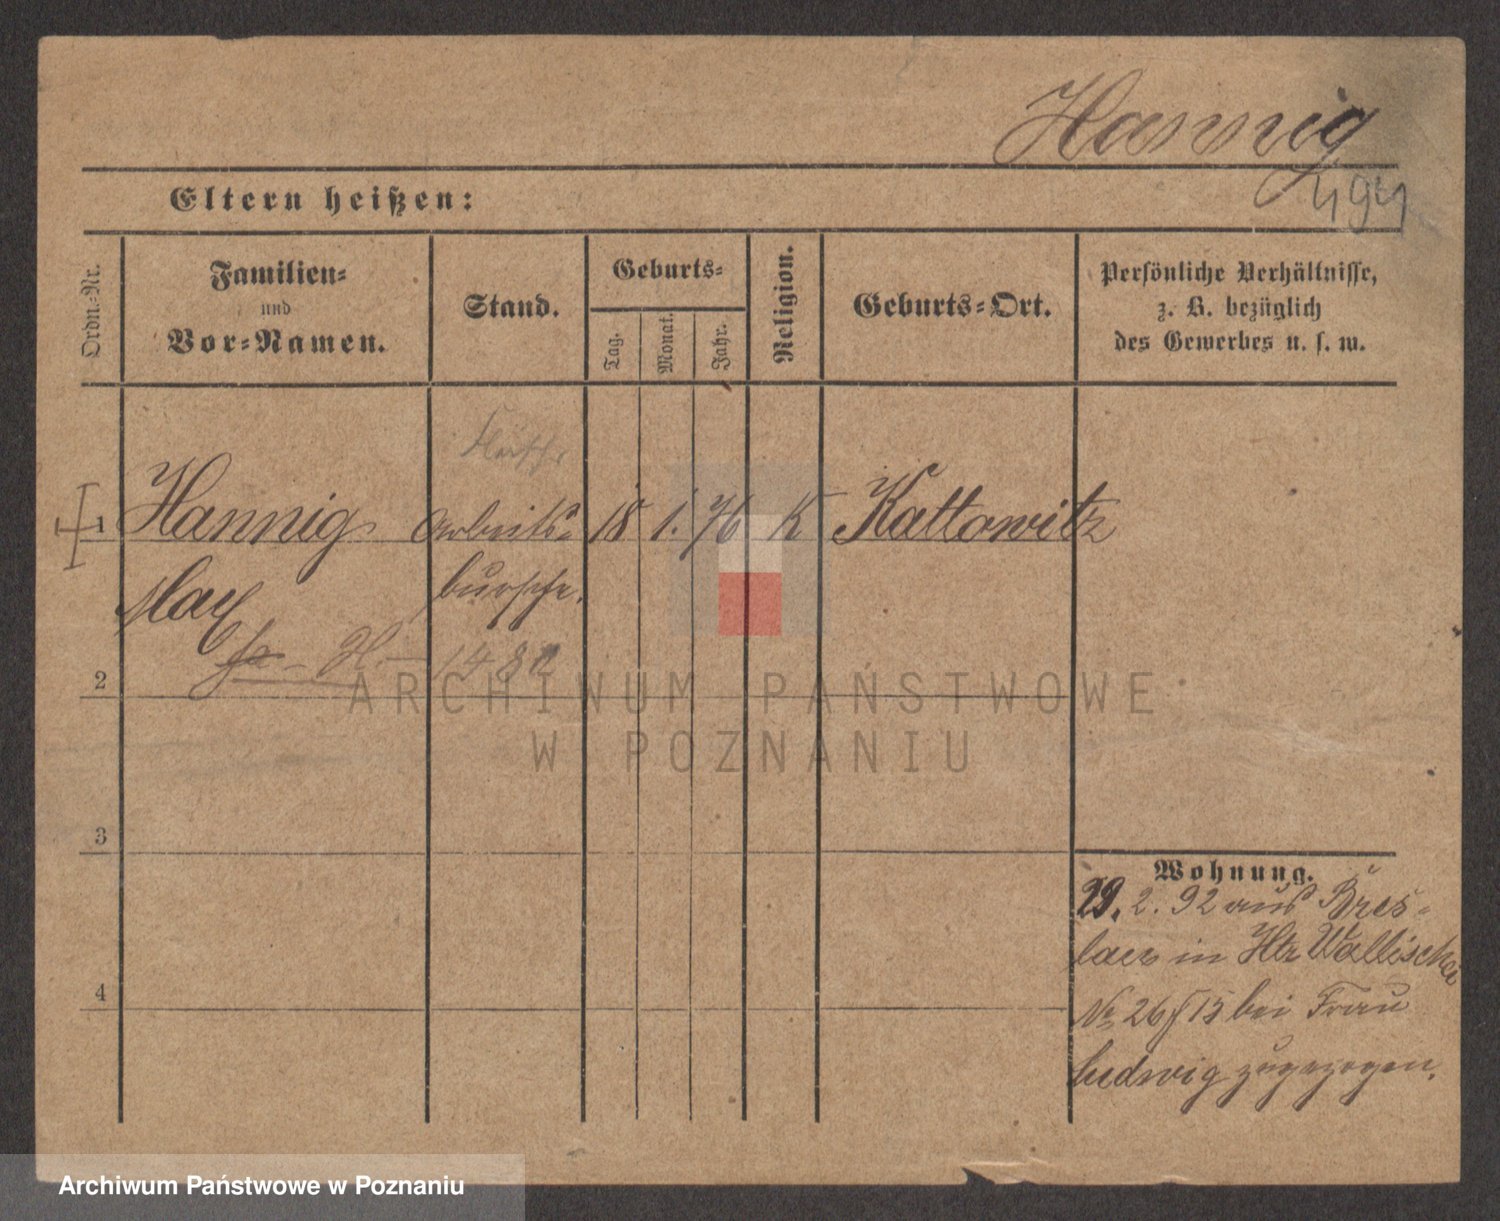 Hannig
494
Eltern heißen:
Ordn.-Nr.
Familien-
und
Vor-Namen.
Stand.
Geburts-
Tag.
Monat.
Jahr.
Religion.
Geburts-Ort.
Persönliche Verhältnisse,
z. B. bezüglich
des Gewerbes u. s. w.
1 Hannig Arbeits- 18 1. 76 K Kattowitz
Max bursche.
2
3
4
Wohnung.
29. 2. 92 aus Bres-
lau in Htr Wallischei
No 26/15 bei Frau
Ludwig zugezogen.
ARCHIWUM PAŃSTWOWE
W POZNANIU
Archiwum Państwowe w Poznaniu